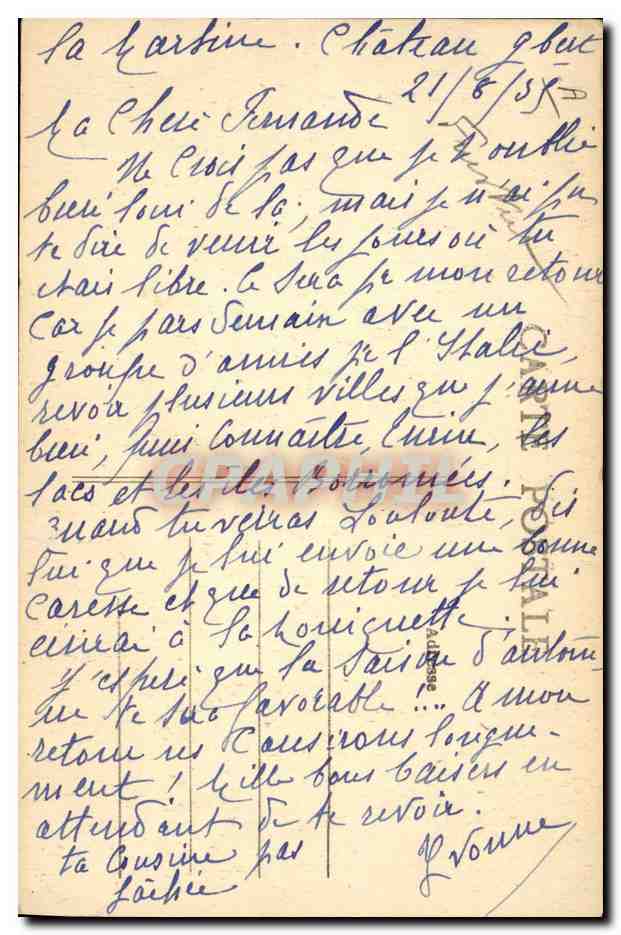 la Martine. Château Gbert
21/8/35
Ma Chère Fernande
Ne Crois pas que je t'oublie
bien loin de là, mais je n'ai pu
te dire de venir les jours où tu
étais libre. Ce sera pr mon retour
Car je pars demain avec un
groupe d'amies pr l'Italie,
revoir plusieurs villes que j'aime
bien, puis Connaître, Turin, les
lacs et les iles Borromées.
Quand tu verras Louloute, dis
lui que je lui envoie une bonne
Caresse et que de retour je lui
à la
J'espère que la Saison d'autom-
ne te sera favorable !... A mon
retour ns Causerons longue-
ment ! Mille bons baisers en
attendant de te revoir.
ta Cousine pas
fâchée
Yvonne
CARTE POSTALE
Adresse
CPAPHIL